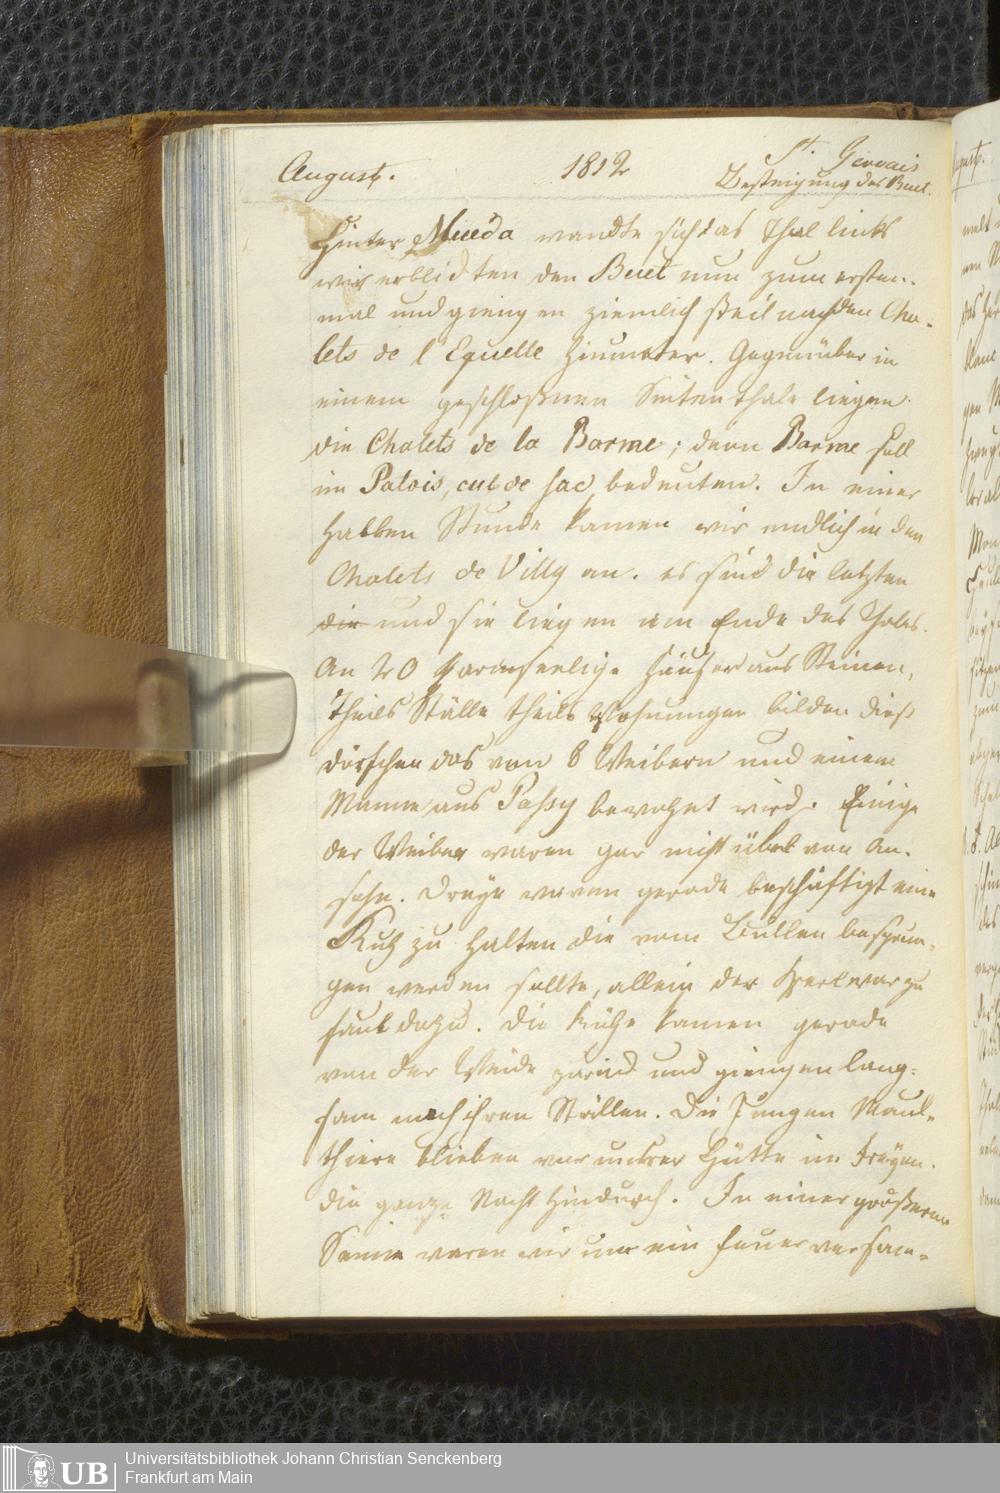 August. 1812 St. Gervais
Besteigung des Buet.
Hinter Mueda wandte sich das Thal links
wir erblickten den Buet nun zum ersten-
mal und giengen ziemlich steil nach den Cha-
lets de l'Equelle hinunter. Gegenüber in
einem geschloßnen Seitenthale liegen
die Chalets de la Barme; denn Barme soll
im Patois, cul de sac, bedeuten. In einer
halben Stunde kamen wir endlich in den
Chalets de Villy an. es sind die letzten
die und sie liegen am Ende des Thales.
An 20 armseelige Häuser aus Steinen,
theils Ställe theils Wohnungen bilden dieß
dörfchen das von 8 Weibern und einem
Manne aus Passy bewohnt wird. Einige
der Weiber waren gar nicht übel von An-
sehn. Dreye waren gerade beschäftigt eine
Kuh zu halten die vom Bullen besprun-
gen werden sollte, allein der Kerl war zu
faul dazu. Die Kühe kamen gerade
von der Weide zurück und giengen lang-
sam nach ihren Ställen. Die Jungen Maul-
thiere blieben vor unsrer Hütte im Freyen
die ganze Nacht hindurch. In einer größeren
waren wir um ein Feuer versam-
Universitätsbibliothek Johann Christian Senckenberg
Frankfurt am Main
UB